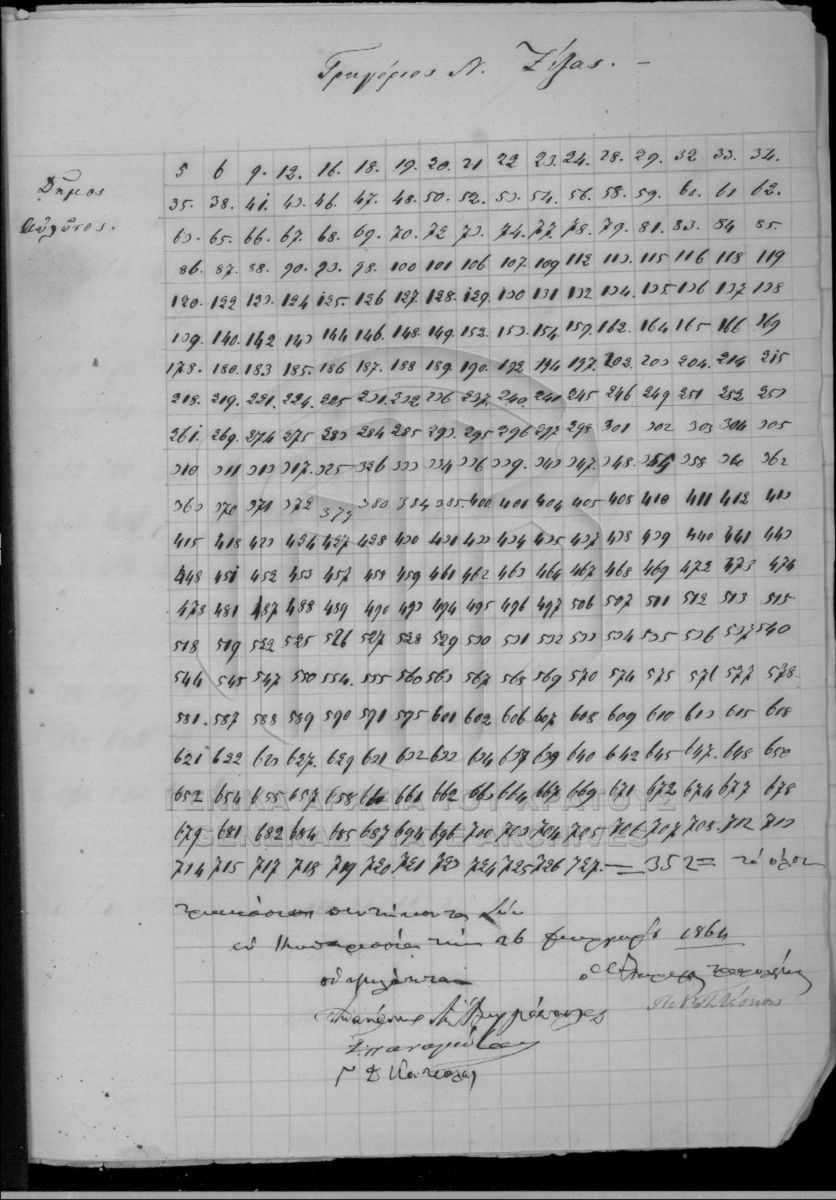 Γρηγόριος Ν. Ζέλας. —
Δῆμος
Αὐλῶνος.
5 6 9. 12. 16. 18. 19. 20. 21 22 23. 24. 28. 29. 32 33. 34.
35. 38. 41. 43. 46. 47. 48. 50. 52. 53. 54. 56. 58. 59. 60. 61 62.
63. 65. 66. 67. 68. 69. 70. 72 73. 74. 77. 78. 79. 81. 83. 84 85.
86. 87. 88. 90. 93. 98. 100 101 106 107. 109 112 113. 115 116 118 119
120. 122 123. 124 125. 126 127. 128. 129. 130 131 132 134. 135 136 137 138
139. 140. 142 143 144 146. 148. 149. 152. 153. 154. 159. 162. 164 165 166 169
178. 180. 183 185. 186 187. 188 189. 190. 192 194 197. 202. 203 204. 214 215
218. 219. 221. 224. 225 231. 232 236 237. 240. 241 245 246 249 251 252 253
261. 269. 274 275 283 284 285 293. 295 296 297 298 301 302 303 304 305
310 311 313 317. 325 326 333 334 336 339. 343 347. 348. 358 360 362
363 370 371 372 379 380 384 385. 400. 401 404 405 408 410 411 412 413
415 418 423 424 427 428 430 431 433 434 435 437 438 439 440 441 443
448 451 452 453 457 458 459 461 462 463 464 467 468 469 472 473 474
478 481 487 488 489 490 493 494 495 496 497 506 507 511 512 513 515
518 519 522 525 526 527 528 529 530 531 532 533 534 535 536 537 540
544 545 547 550 554. 555 560 563 567 568 569 570 574 575 576 577 578
581. 587 588 589 590 591 595 601 602 606 607 608 609 610 613 615 618
621 622 623 627. 629 631 632 633 634 637 639 640 642 645 647. 648 650
652 654 655 657 658 660 661 662 663 664 667 669 671 672 674 677 678
679 681 682 684 685 687 694 696 700 703 704 705 706 707 708. 712 713
714 715 717 718 719 720 721 723 724 725 726 727. — 352 = τὸ ὅλον
τριακόσιαι πεντήκοντα δύο
ἐν Κυπαρισσίᾳ τὴν 26 1864
ΓΕΝΙΚΑ ΑΡΧΕΙΑ ΤΟΥ ΚΡΑΤΟΥΣ
GENERAL STATE ARCHIVES